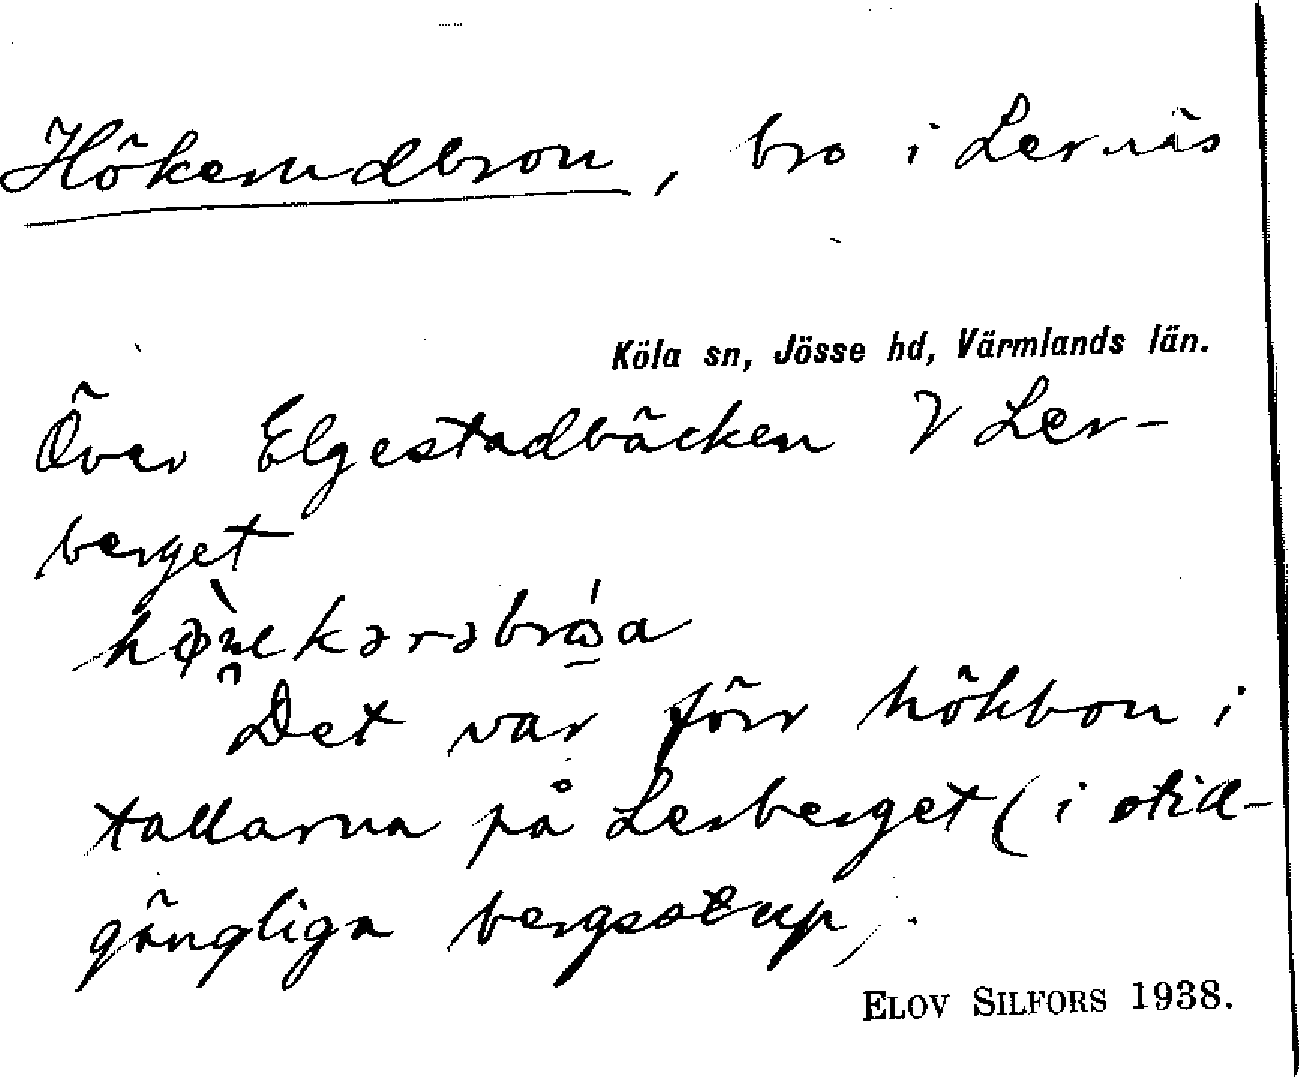 Hökerudbron, bro i Lernäs
Köla sn, Jösse hd, Värmlands län.
Över Elgestadbäcken V Ler-
berget
Det var förr hökbon i
tallarna på Lerberget (i otill-
gängliga bergstup).
ELOV SILFORS 1938.